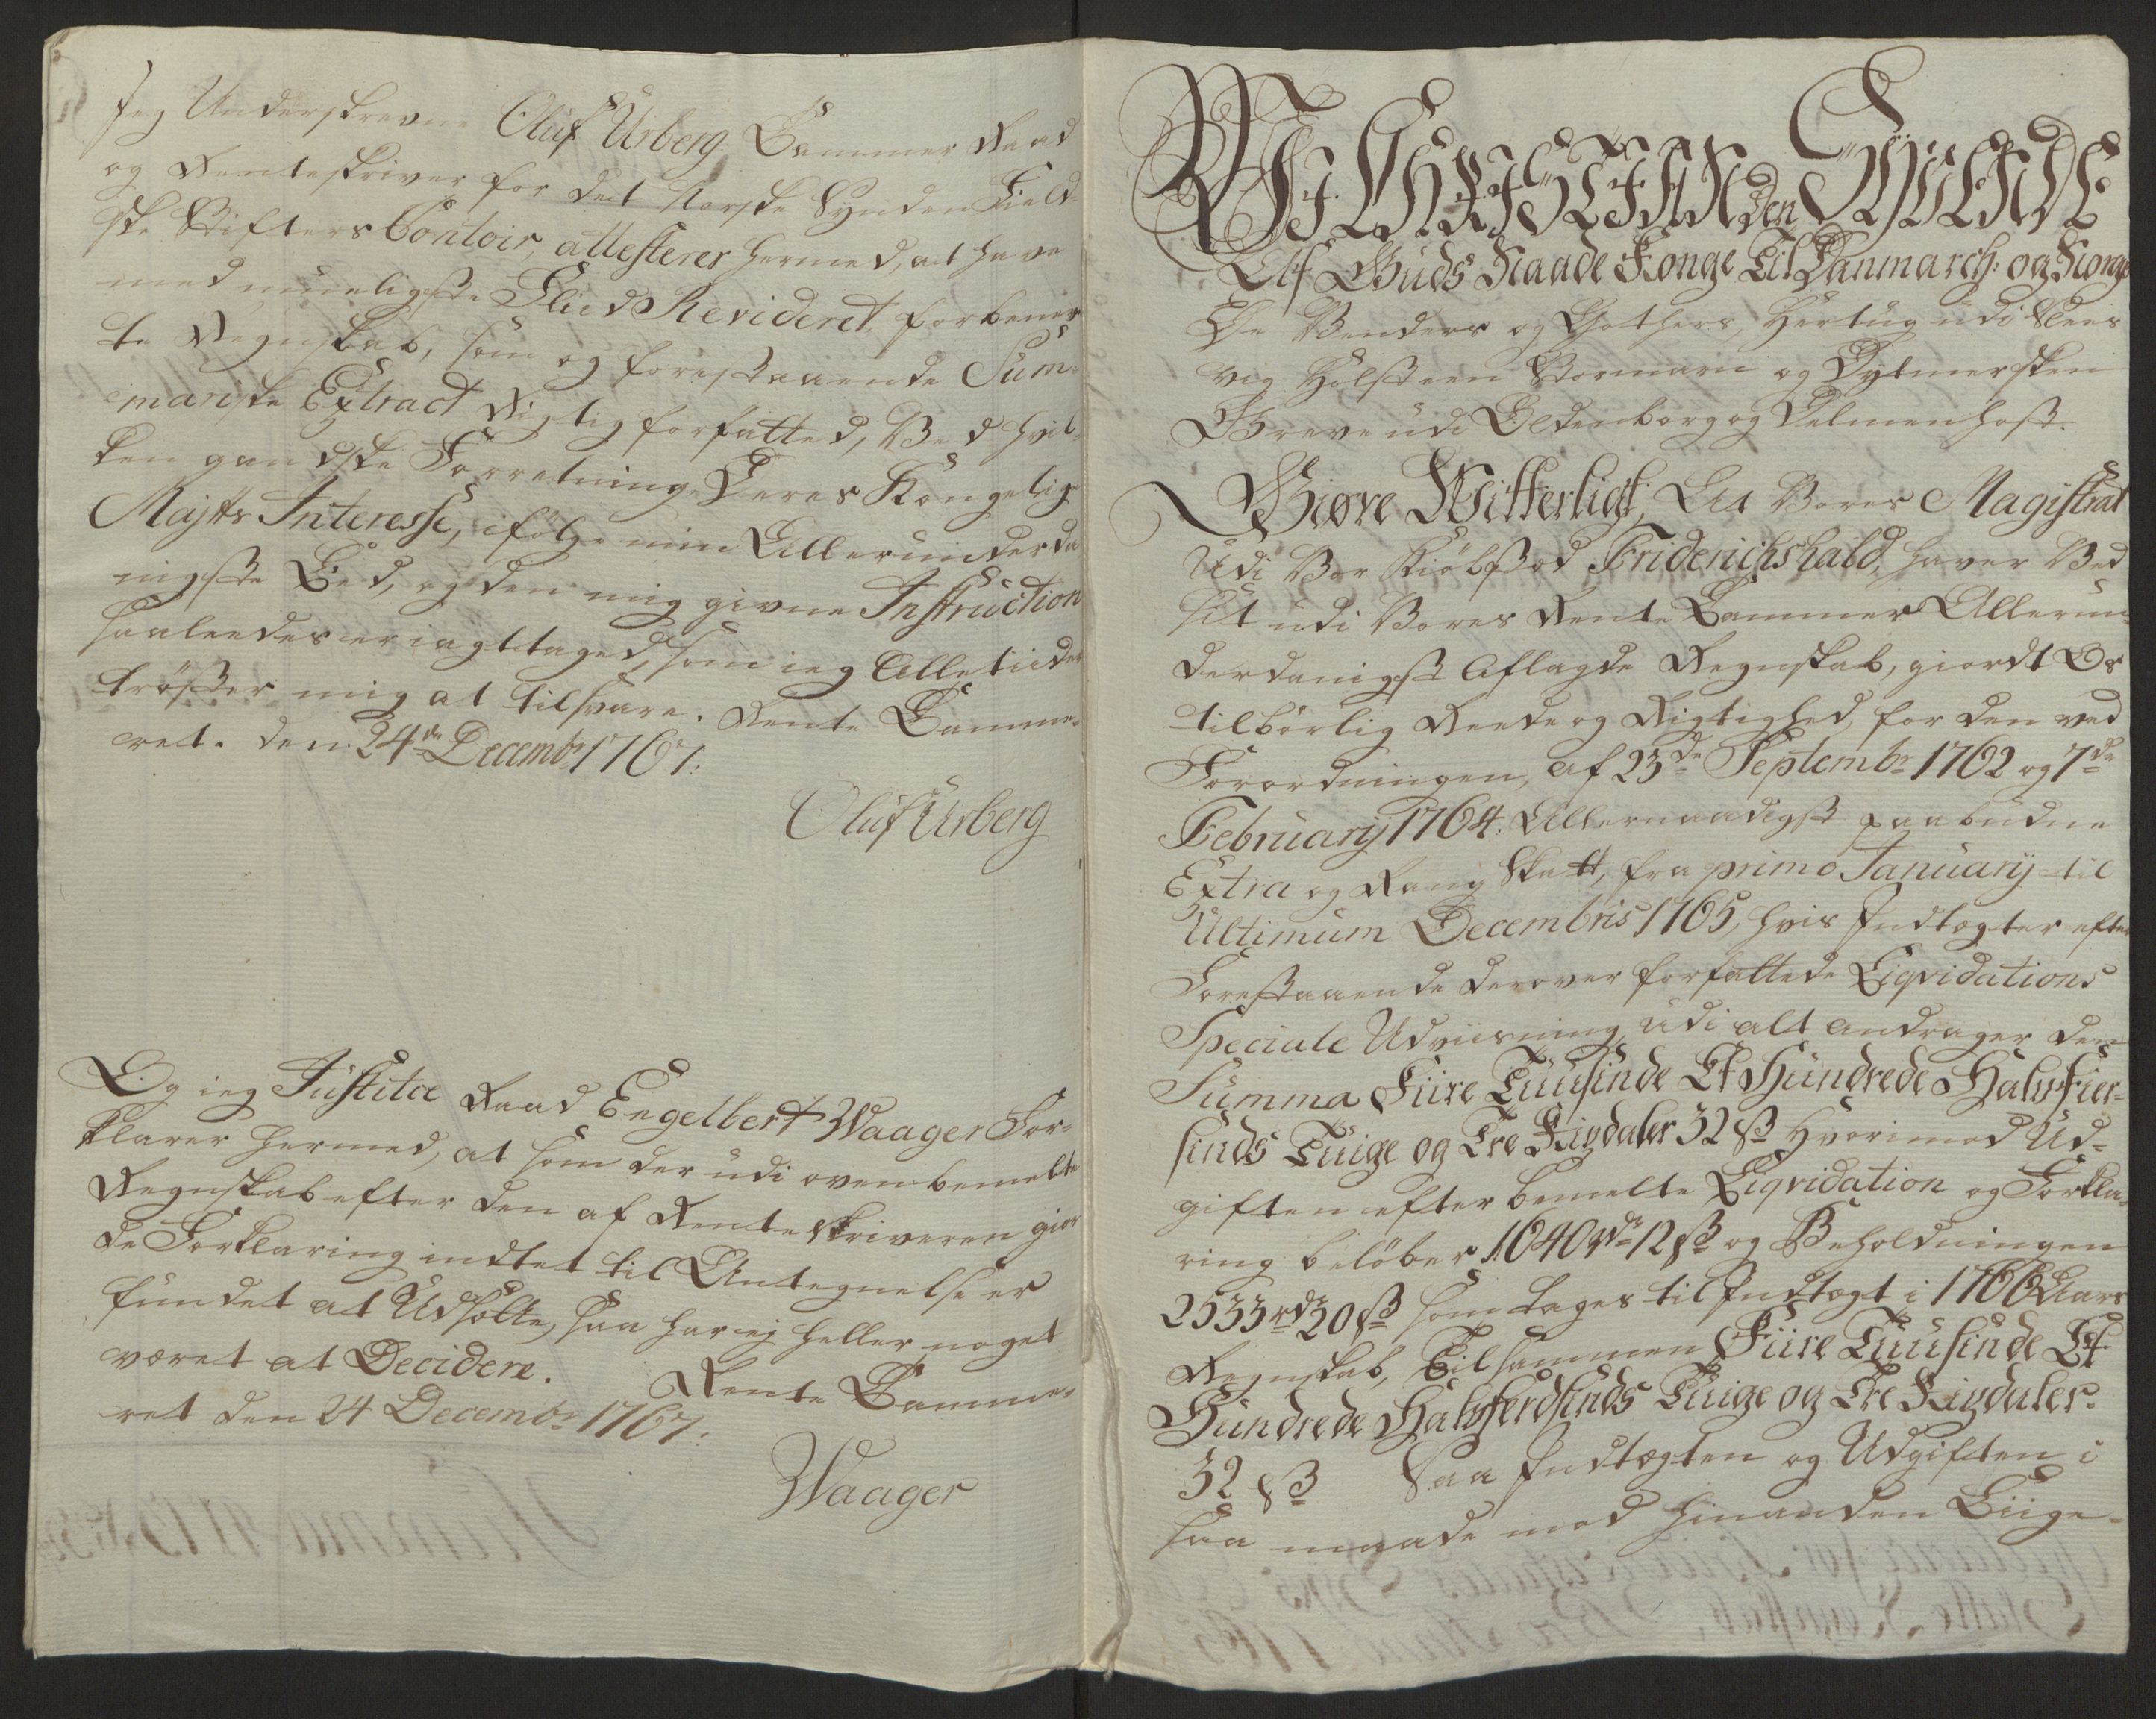 Jeg Underskrevne Oluf Urberg Cammer Raad
og Renteskriver for det Norske Synden Field-
ske Stifters Contoir, attesterer hermed, at have
med mueligste Fliid Revideret forbenev
te Regnskab, som og forestaaende Sum-
mariske Extract Rigtig forfatted, Ved hvil-
ken gandske Forretning Deres Kongelig
Majtts Interesse, ifølge min Allerunderda
nigste Eed, og den mig givne Instruction
saaleedes er iagttaged, som ieg Alletiider
trøster mig at tilsvare. Rente Camme-
ret. den 24de Decembr 1767.
Oluf Urberg
Og ieg Justitce Raad Engelbert Waager For-
klarer hermed, at som der udi ovenbemelte
Regnskab efter den af Renteskriveren gior
de Forklaring indtet til Antegnelse er
fundet at Udsætte, saa har ej heller noget
været at Decidere. Rente Camme-
ret den 24 Decembr 1767.
Waager
Wi CHRISTIAN den SYVENDE
Af Guds Naade Konge Til Danmarch og Norge
De Venders og Gothers, Hertug udi Slees
vig Holsteen Stormarn og Dytmersken
Greve udi Oldenborg og Delmenhost.
Giøre Witterligt, At Vores Magistrat
Udi Vor Kiøbstæd Friderichshald, haver Ved
sit udi Vores Rente Cammer Allerun-
derdanigst Aflagde Regnskab, giordt Os
tilbørlig Reede og Rigtighed, for den ved
Forordningen, af 23de Septembr 1762 og 7de
Februarij 1764. Allernaadigst paabudne
Extra og Rang Skatt, fra primo Januarij til
Ultimum Decembris 1765, hvis Indtægter efter
Forestaaende derover forfattede Liqvidations
Speciale Udviisning, udi alt andrager den
Summa Fiire Tuusinde Et Hundrede Halvfier-
sinds Tuige og Tre Rigdaler 32 sβ Hvorimod Ud-
giften efter bemelte Liqvidation og Forkla-
ring beløber 1640 rdr 12 sβ og Beholdningen
2533 rdr 20 sβ som tages til Indtægt i 1766 Aars
Regnskab, Tilsammen Fiire Tuusinde Et
Hundrede Halvfierdsinds Tuige og Tre Rigdaler
32 sβ Saa Indtægten og Udgiften i
saa maade mod hinanden Liige-